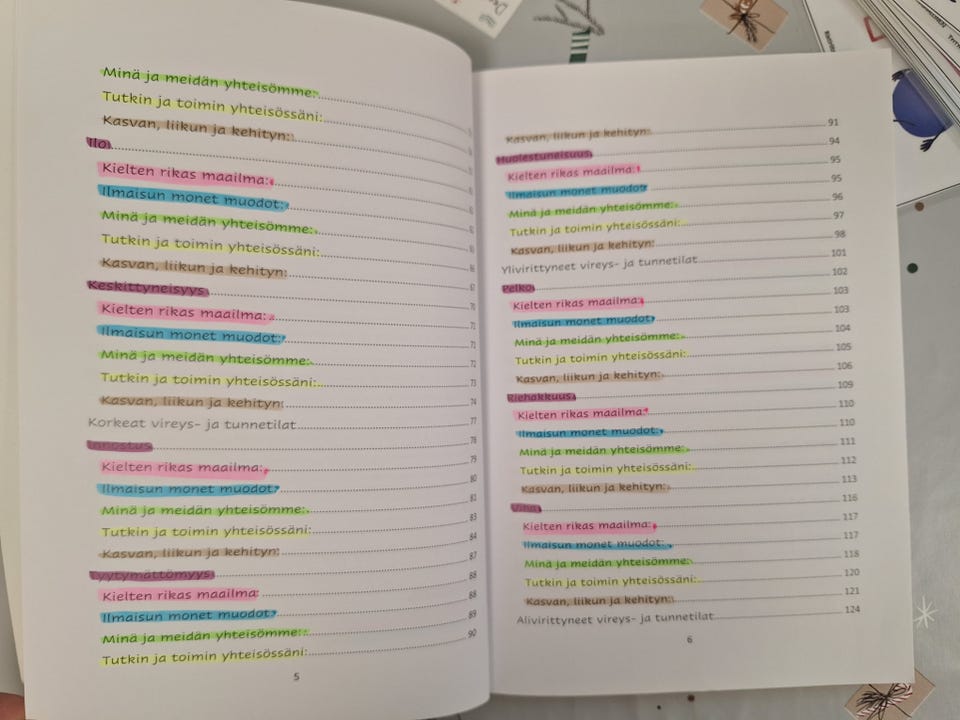 Minä ja meidän yhteisömme:
Tutkin ja toimin yhteisössäni:
Kasvan, liikun ja kehityn:
Ilo
Kielten rikas maailma:
Ilmaisun monet muodot:
Minä ja meidän yhteisömme:
Tutkin ja toimin yhteisössäni:
Kasvan, liikun ja kehityn:
Keskittyneisyys 70
Kielten rikas maailma: 71
Ilmaisun monet muodot: 71
Minä ja meidän yhteisömme: 72
Tutkin ja toimin yhteisössäni: 73
Kasvan, liikun ja kehityn: 74
Korkeat vireys- ja tunnetilat 77
Innostus 78
Kielten rikas maailma: 79
Ilmaisun monet muodot: 80
Minä ja meidän yhteisömme: 81
Tutkin ja toimin yhteisössäni: 83
Kasvan, liikun ja kehityn: 84
Tyytymättömyys 87
Kielten rikas maailma: 88
Ilmaisun monet muodot: 88
Minä ja meidän yhteisömme: 89
Tutkin ja toimin yhteisössäni: 90
5
Kasvan, liikun ja kehityn: 91
Huolestuneisuus 94
Kielten rikas maailma: 95
Ilmaisun monet muodot: 95
Minä ja meidän yhteisömme: 96
Tutkin ja toimin yhteisössäni: 97
Kasvan, liikun ja kehityn: 98
Ylivirittyneet vireys- ja tunnetilat 101
Pelko 102
Kielten rikas maailma: 103
Ilmaisun monet muodot: 103
Minä ja meidän yhteisömme: 104
Tutkin ja toimin yhteisössäni: 105
Kasvan, liikun ja kehityn: 106
Riehakkuus 109
Kielten rikas maailma: 110
Ilmaisun monet muodot: 110
Minä ja meidän yhteisömme: 111
Tutkin ja toimin yhteisössäni: 112
Kasvan, liikun ja kehityn: 113
Viha 116
Kielten rikas maailma: 117
Ilmaisun monet muodot: 117
Minä ja meidän yhteisömme: 118
Tutkin ja toimin yhteisössäni: 120
Kasvan, liikun ja kehityn: 121
Alivirittyneet vireys- ja tunnetilat 124
6